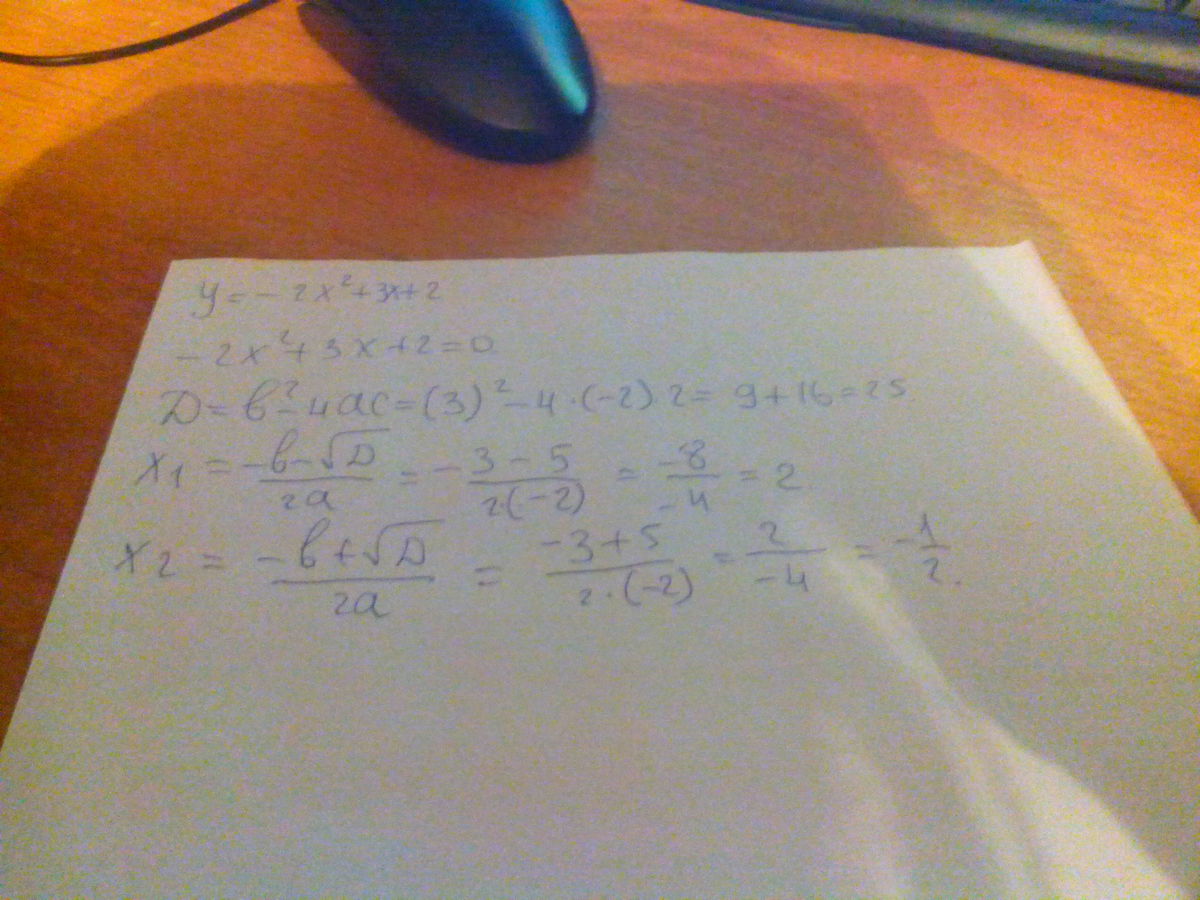 y = -2x² + 3x + 2
-2x² + 3x + 2 = 0
D = b² - 4ac = (3)² - 4·(-2)·2 = 9 + 16 = 25.
x₁ = (-b - √D)/(2a) = (-3 - 5)/(2(-2)) = (-8)/(-4) = 2.
x₂ = (-b + √D)/(2a) = (-3 + 5)/(2·(-2)) = 2/(-4) = -1/2.